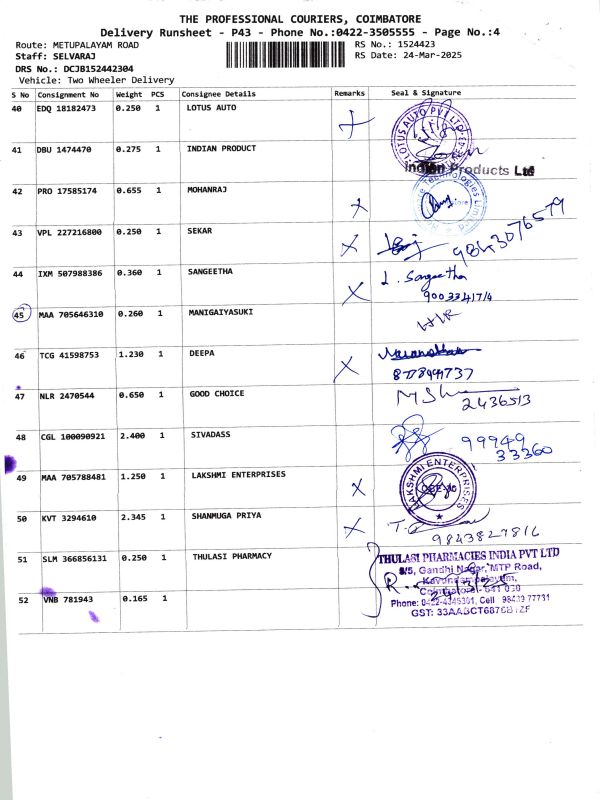 THE PROFESSIONAL COURIERS, COIMBATORE
Delivery Runsheet - P43 - Phone No.:0422-3505555 - Page No.:4
Route: METUPALAYAM ROAD RS No.: 1524423
Staff: SELVARAJ RS Date: 24-Mar-2025
DRS No.: DCJB152442304
Vehicle: Two Wheeler Delivery
S No Consignment No Weight PCS Consignee Details Remarks Seal & Signature
40 EDQ 18182473 0.250 1 LOTUS AUTO
LOTUS AUTO PVT LTD
41 DBU 1474470 0.275 1 INDIAN PRODUCT
Indian Products Ltd
42 PRO 17585174 0.655 1 MOHANRAJ X
43 VPL 227216800 0.250 1 SEKAR X 9843076579
44 IXM 507988386 0.360 1 SANGEETHA X L. Sangeetha
9003341714
45 MAA 705646310 0.260 1 MANIGAIYASUKI
46 TCG 41598753 1.230 1 DEEPA X
47 NLR 2470544 0.650 1 GOOD CHOICE
2436513
48 CGL 100090921 2.400 1 SIVADASS 99949
33360
49 MAA 705788481 1.250 1 LAKSHMI ENTERPRISES X LAKSHMI ENTERPRISES
50 KVT 3294610 2.345 1 SHANMUGA PRIYA X
9843827816
51 SLM 366856131 0.250 1 THULASI PHARMACY THULASI PHARMACIES INDIA PVT LTD
8/5, Gandhi Nagar, MTP Road,
Coimbatore - 641 030
52 VNB 781943 0.165 1 24/3/25
Phone: Cell: 98439 77731